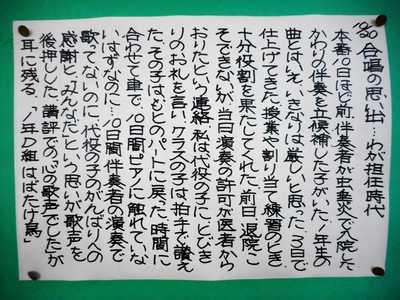 10/30 合唱の思い出…わが担任時代
本番10日ほど前、伴奏者が虫垂炎で入院した
かわりの伴奏を立候補した子がいた。一年生の
曲とはいえ、いきなりは厳しいと思った。3日で
仕上げてきた。授業や割り当て練習のとき
十分役割を果たしてくれた。前日退院こ
そできないが、当日演奏の許可が医者から
おりたという連絡。私は代役の子に、とびき
りのお礼を言い、クラスの子は拍手で讃え
た。その子はもとのパートに戻った。時間に
合わせて車で。10日間ピアノに触れてな
いはずなのに…10日間伴奏者の演奏で
歌ってないのに、代役の子のがんばりへの
感謝と、みんなだという思いが歌声を
後押しした。講評での「心の歌声でした」が
耳に残る。「1年D組はばたけ鳥」